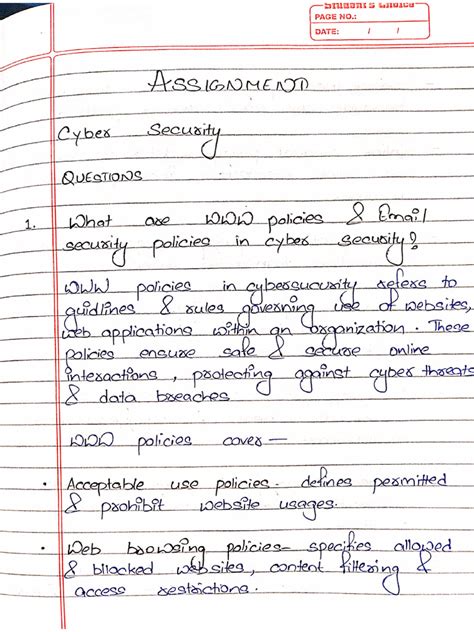 Student's Choice
PAGE NO.:
DATE: / /
ASSIGNMENT
Cyber Security
QUESTIONS
1. What are WWW policies & Email
security policies in cyber security?
WWW policies in cybersucurity refers to
guidlines & rules governing use of websites,
web applications within an organization. These
policies ensure safe & secure online
interactions, protecting against cyber threats
& data breaches
WWW policies cover —
• Acceptable use policies - defines permitted
& prohibit website usages.
• Web browsing policies - specifies allowed
& bllocked websites, content filtering &
access restrictions.